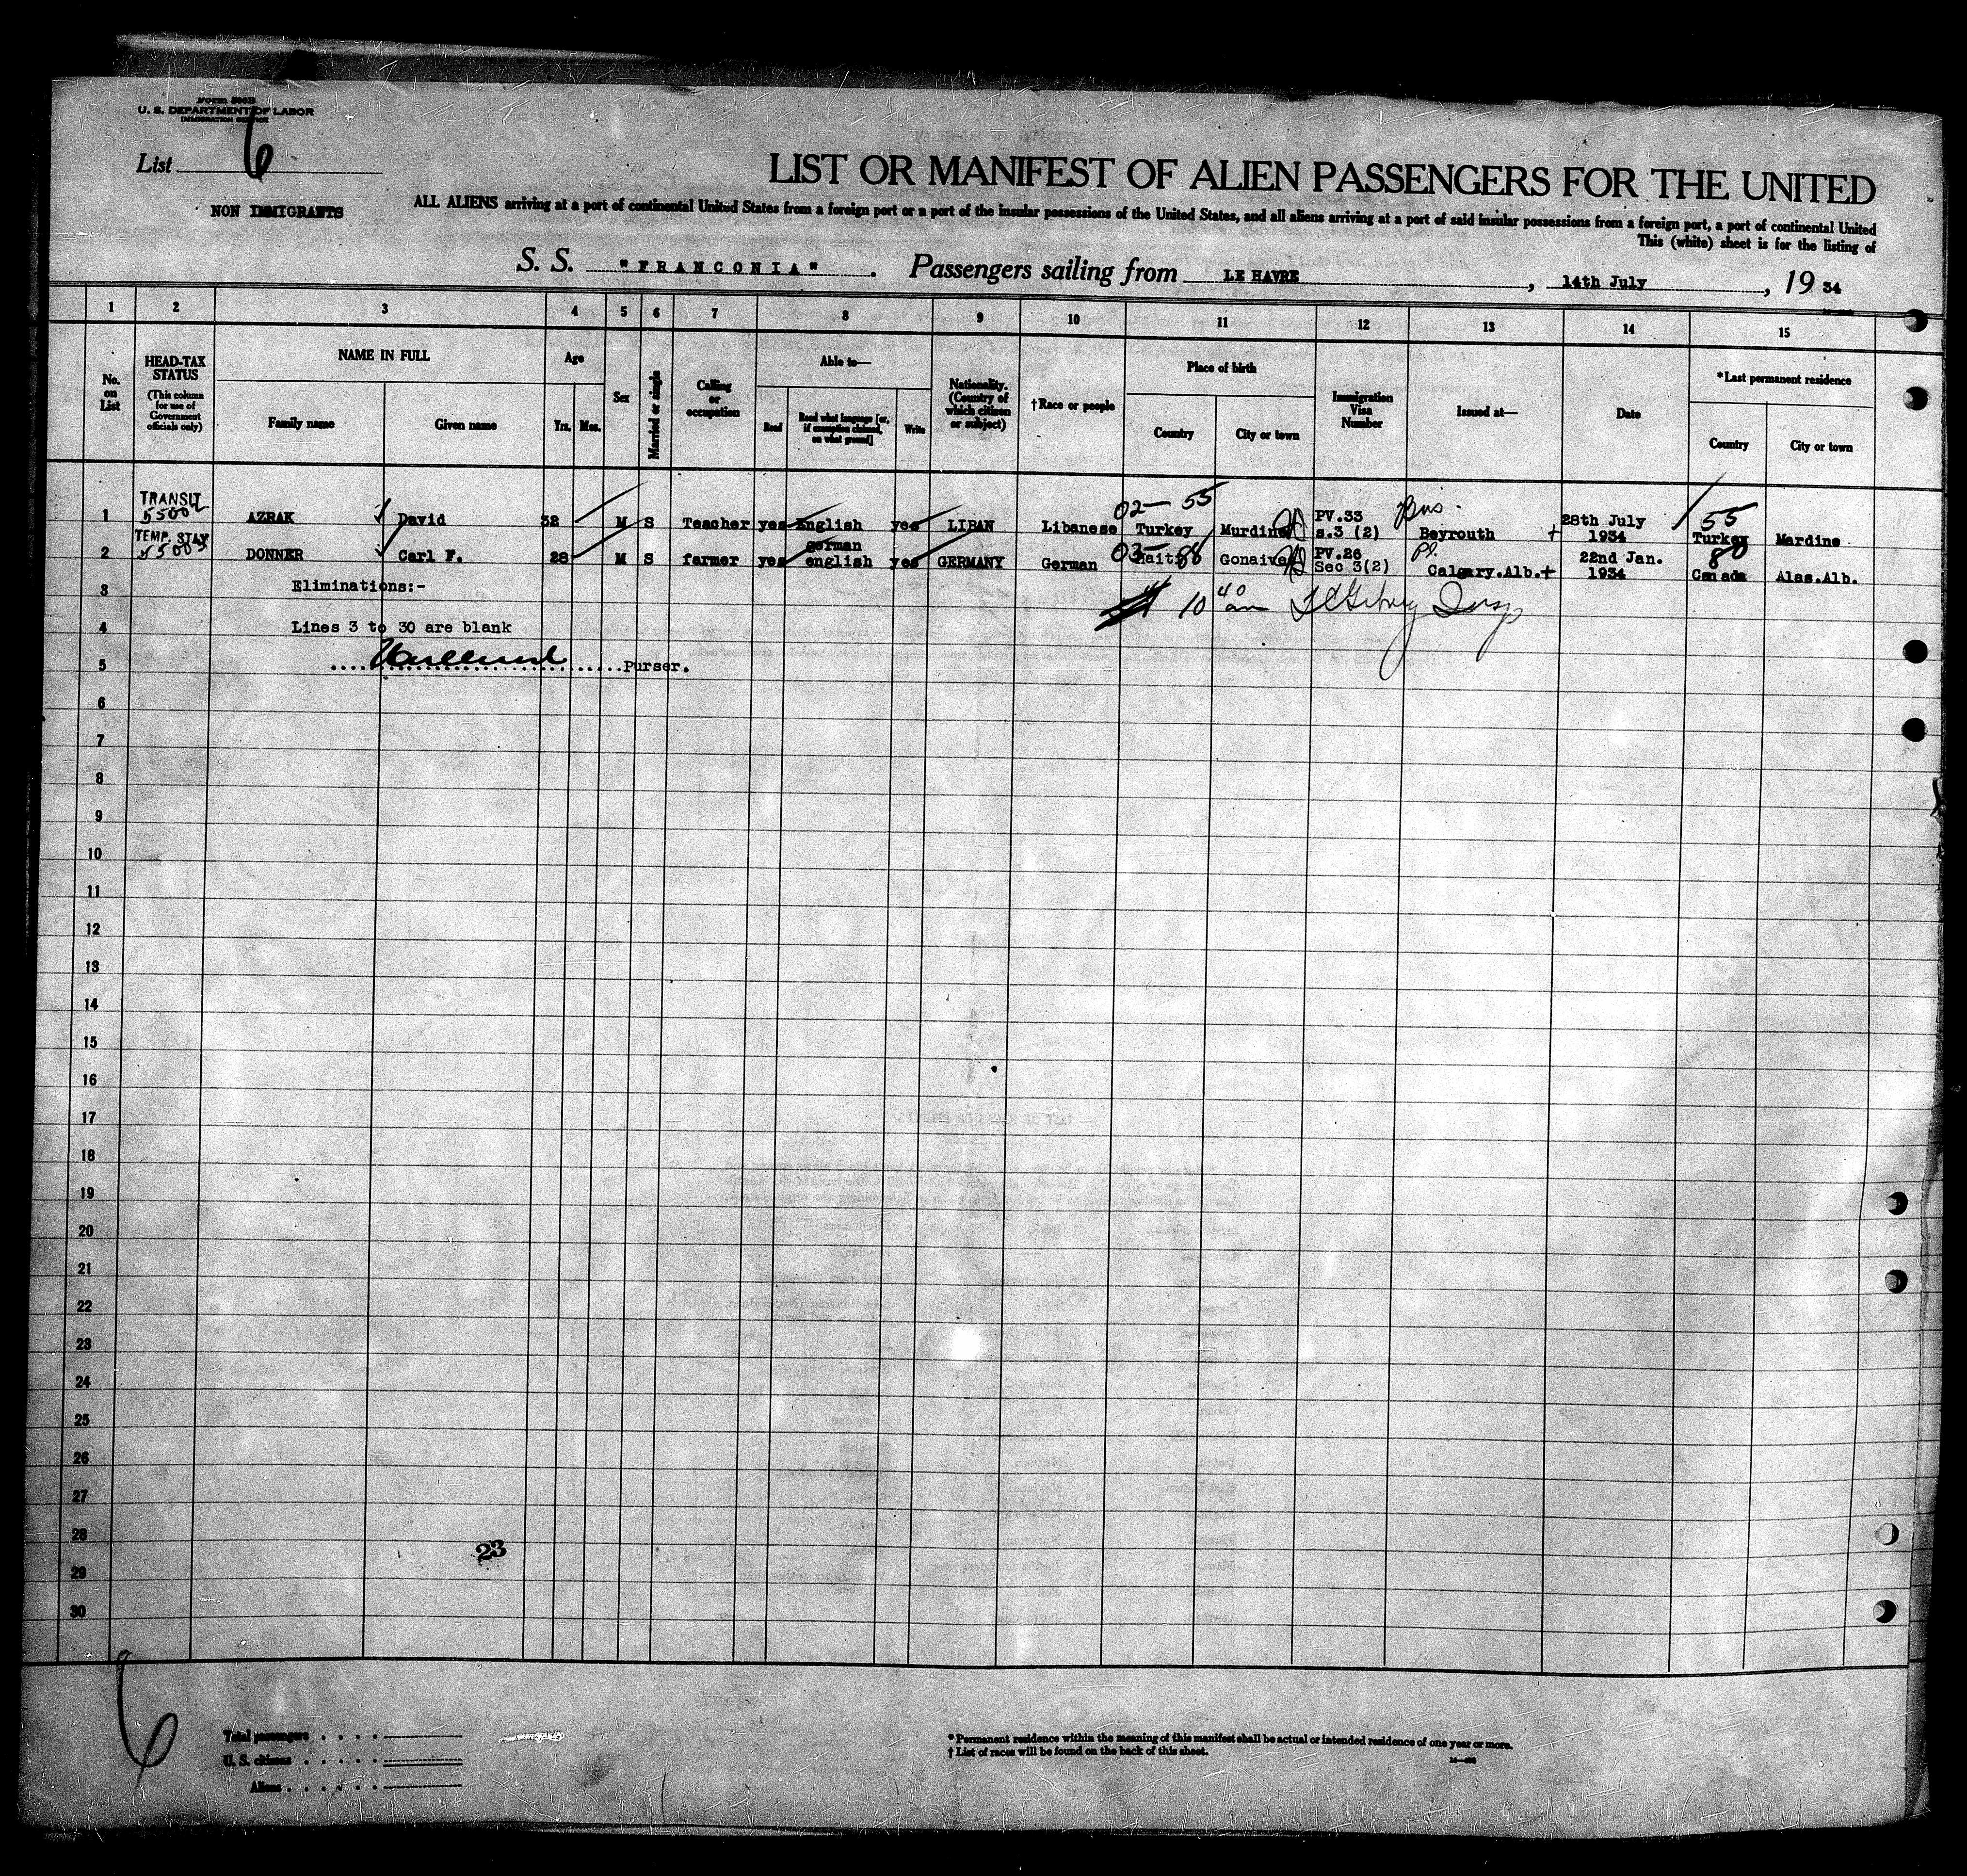 Form 500B
U. S. DEPARTMENT OF LABOR
IMMIGRATION SERVICE
List 6
NON IMMIGRANTS
LIST OR MANIFEST OF ALIEN PASSENGERS FOR THE UNITED
ALL ALIENS arriving at a port of continental United States from a foreign port or a port of the insular possessions of the United States, and all aliens arriving at a port of said insular possessions from a foreign port, a port of continental United
This (white) sheet is for the listing of
S. S. "FRANCONIA". Passengers sailing from LE HAVRE, 14th July, 19 34
1 2 3 4 5 6 7 8 9 10 11 12 13 14 15
No. on List
HEAD-TAX STATUS
(This column for use of Government officials only)
NAME IN FULL
Family name
Given name
Age
Yrs. Mos.
Sex
Married or single
Calling or occupation
Able to—
Read
Read what language [or, if exemption claimed, on what ground]
Write
Nationality. (Country of which citizen or subject)
†Race or people
Place of birth
Country
City or town
Immigration Visa Number
Issued at—
Date
*Last permanent residence
Country
City or town
TRANSIT 02- 55 Bus. 55
1 AZRAK David 32 M S Teacher yes English yes LIBAN Libanese Turkey Murdine PV.33 s.3 (2) Beyrouth + 28th July 1934 Turkey Mardine
TEMP. STAY 03 88 Pl. 80
2 DONNER Carl F. 28 M S farmer yes german english yes GERMANY German Haiti Gonaives PV.26 Sec 3(2) Calgary.Alb.+ 22nd Jan. 1934 Canada Alas.Alb.
3 Eliminations:- 10 40 am Insp
4 Lines 3 to 30 are blank
5 Purser.
6
7
8
9
10
11
12
13
14
15
16
17
18
19
20
21
22
23
24
25
26
27
28 23
29
30
6
Total passengers
U. S. citizens
Aliens
* Permanent residence within the meaning of this manifest shall be actual or intended residence of one year or more.
† List of races will be found on the back of this sheet.